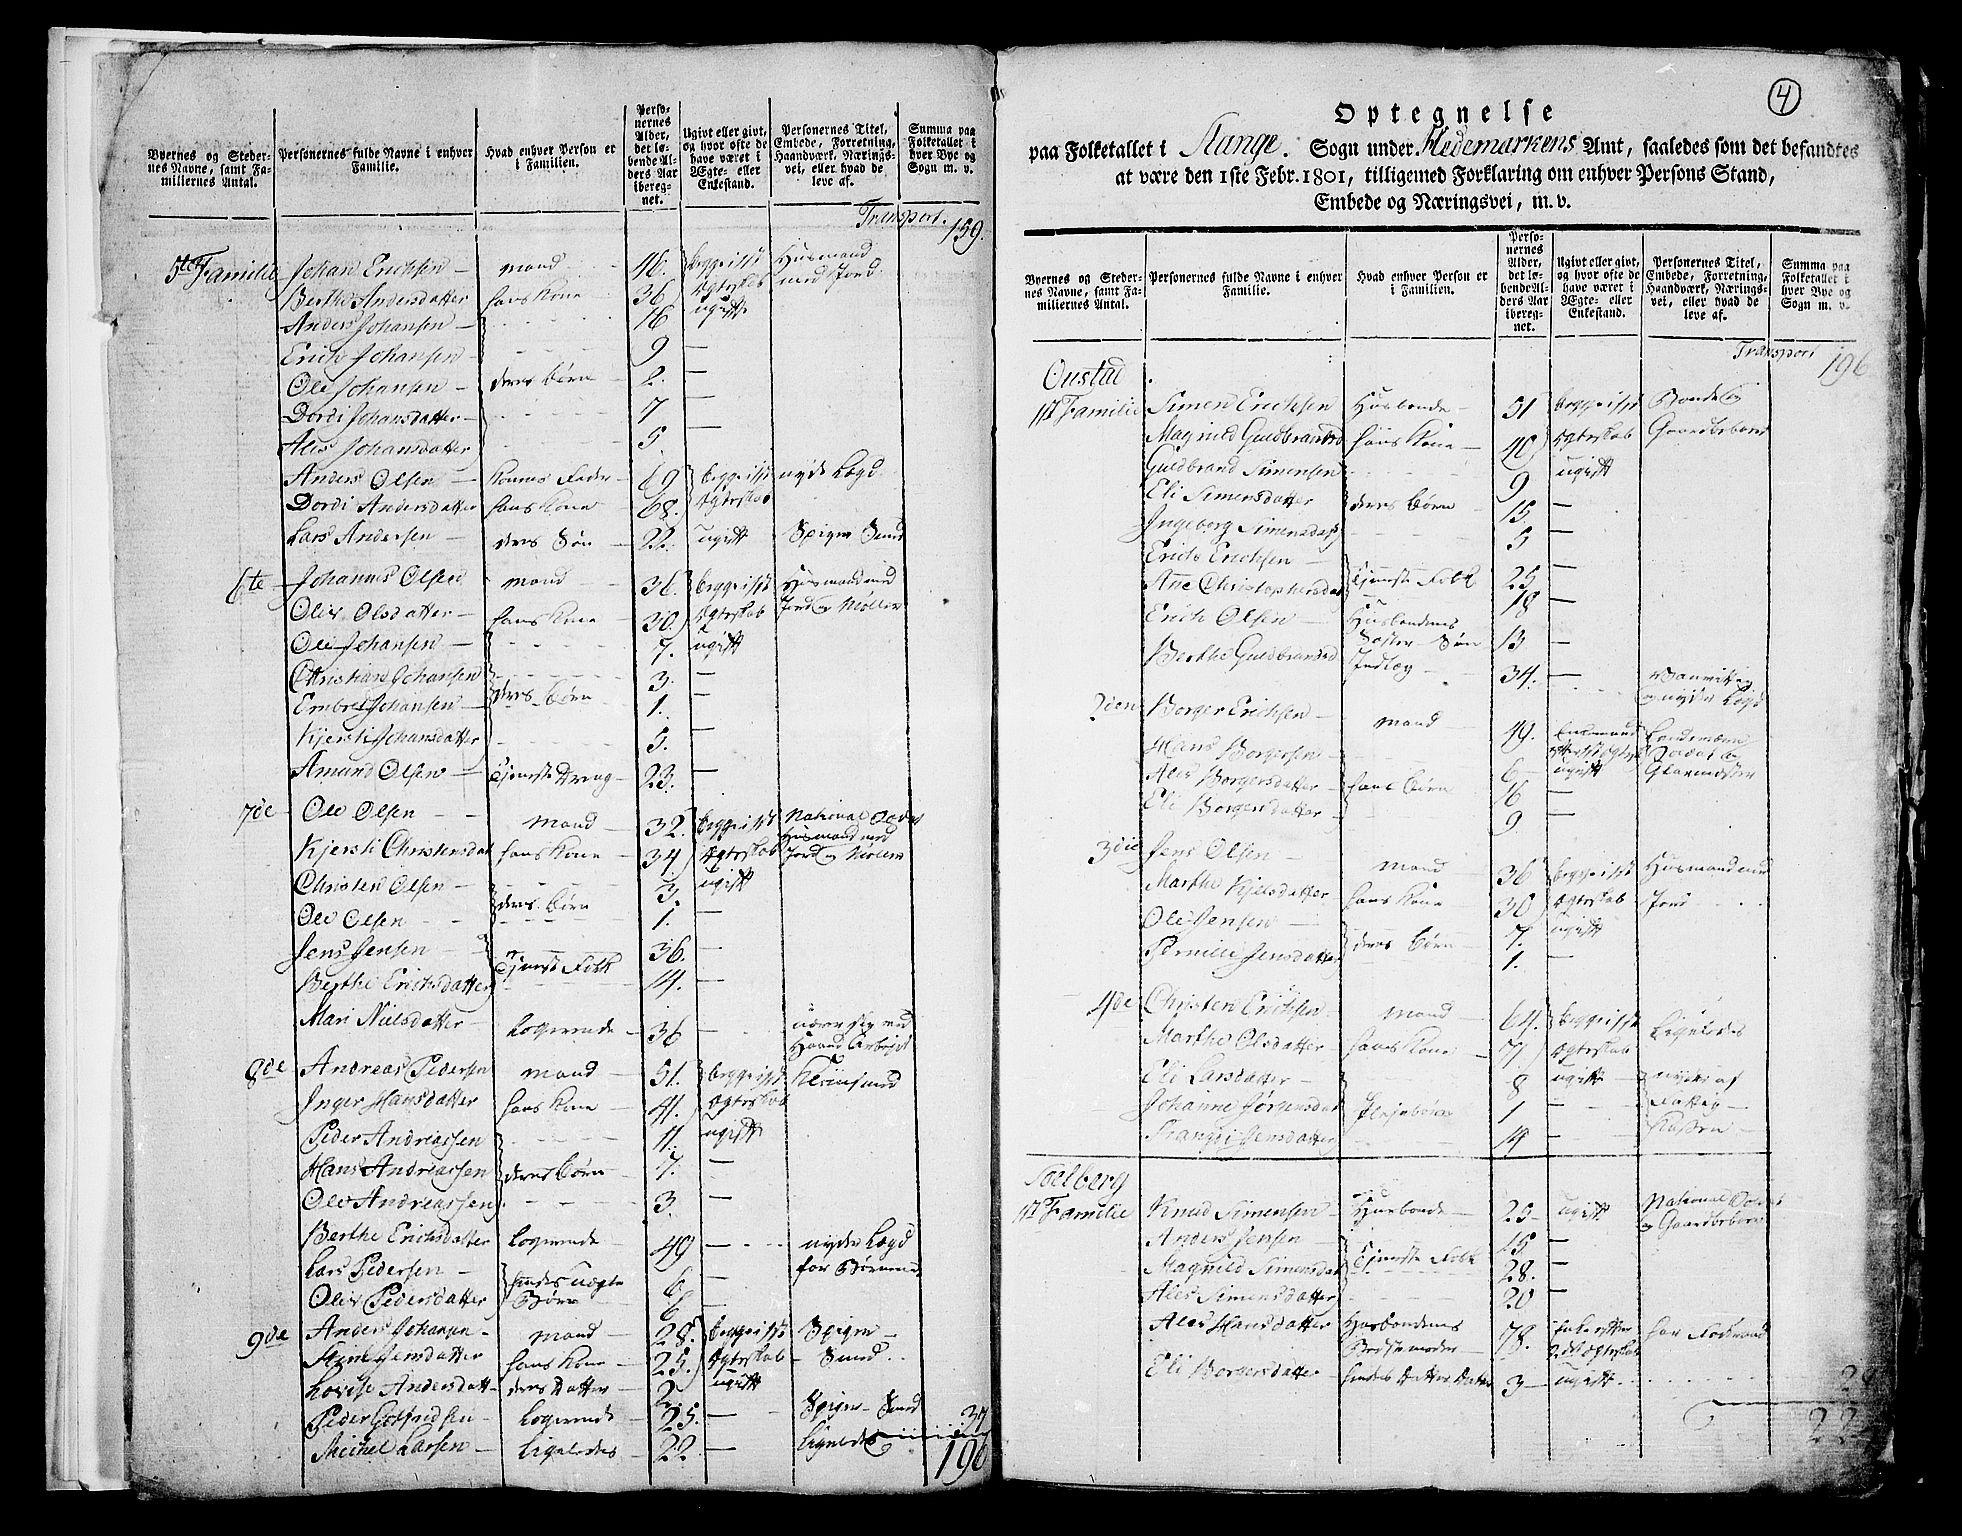 Byernes og Steder-
nes Navne, samt Fa-
miliernes Antal.
Personernes fulde Navne i enhver
Familie.
Hvad enhver Person er
i Familien.
Perso-
nernes
Alder,
der lø-
bende Al-
ders Aar
ibereg-
net.
Ugivt eller givt,
og hvor ofte de
have været i
Ægte- eller
Enkestand.
Personernes Titel,
Embede, Forretning,
Haandværk, Nærings-
vei, eller hvad de
leve af.
Summa paa
Folketallet i
hver Bye og
Sogn m. v.
Transport. 159.
5te Familie Johan Erichsen mand 46. begge i 1ste Husmand
Berthe Andersdatter hans Kone 36 Ægteskab med Jord
Anders Johansen 16 ugivt
Erich Johansen 9 —
Ole Johansen deres børn 2. —
Dordi Johansdatter 7 —
Ales Johansdatter 5 —
Anders Olsen Konens Fader 69 begge i 1ste nyde Lægd
Dordi Andersdatter hans Kone 68. Ægteskab
Lars Andersen deres Søn 22 ugivt Spiger Smed
6te Johannes Olsen mand 36. begge i 1ste Husmand med
Oliv Olsdatter hans Kone 30. Ægteskab Jord og Møller
Ole Johansen 7. ugivt
Christian Johansen 3. —
Embret Johansen deres børn 1. —
Kjersti Johansdatter 5. —
Amund Olsen Tjeneste Dreng 23. —
7de Ole Olsen mand 32. begge i 1ste National Soldat
Husmand med
Kjersti Christensdat hans Kone 34 Ægteskab Jord og Møller
Christen Olsen 3. ugivt
Ole Olsen deres børn 1. —
Jens Jensen 36. —
Berthe Erichsdatter Tjeneste Folk 14. —
Mari Nielsdatter Logerende 36 — nærer sig ved
Haand Arbejde
8de Andreas Pedersen mand 51. begge i 1ste
Inger Hansdatter hans Kone 41. Ægteskab
Peder Andreassen 11. ugivt
Hans Andreassen deres børn 7. —
Ole Andreassen 3. —
Berthe Erichsdatter Logerende 49 — nyder Lægd
for Børnene
Lars Pedersen 6 —
Oliv Pedersdatter hendes uægte Børn 6 —
9de Anders Johansen mand 28. begge i 1ste Spiger
Stine Jensdatter hans Kone 25. Ægteskab Smed
Lovise Andersdatt deres Datter 2 ugivt
Peder Gotfridsen Logerende 25. — Spiger Smed 37
Michel Larsen ligeledes 22 — ligeledes
196
4
Optegnelse
paa Folketallet i Stange. Sogn under Hedemarkens Amt, saaledes som det befandtes
at være den 1ste Febr. 1801, tilligemed Forklaring om enhver Persons Stand,
Embede og Næringsvei, m. v.
Byernes og Steder-
nes Navne, samt Fa-
miliernes Antal.
Personernes fulde Navne i enhver
Familie.
Hvad enhver Person er
i Familien.
Perso-
nernes
Alder,
det lø-
bende Al-
ders Aar
ibereg-
net.
Ugivt eller givt,
og hvor ofte de
have været i
Ægte- eller
Enkestand.
Personernes Titel,
Embede, Forretning,
Haandværk, Nærings-
vei, eller hvad de
leve af.
Summa paa
Folketallet i
hver Bye og
Sogn m. v.
Transport 196
Oustad
1st Familie Simen Erichsen Husbonde 51 begge i 1ste Bonde og
Magnild Guldbrandsd hans Kone 40 Ægteskab Gaardbeboer
Guldbrand Simensen 9 ugivt
Eli Simensdatter deres børn 15 —
Ingeborg Simensdatt 5 —
Erich Erichsen 25 —
Ane Christophersdat Tjeneste Folk 18 —
Erich Olsen Husbondens
Søster Søn 13 —
Berthe Guldbrandsd Indlæg 34. — Vanvittig
og nyder Lægd
2den Borger Erichsen mand 49. Enkemand
Hans Borgersen 6 ugivt
Ales Borgersdatter hans børn 16 —
Eli Borgersdatter 9 —
3die Jens Olsen mand 36 begge i 1ste Husmand med
Marthe Kjelsdatter hans Kone 30 Ægteskab Jord
Ole Jensen 7. ugivt
Pernille Jensdatter deres børn 1. —
4de Christen Erichsen mand 64. begge i 1ste Ligeledes
Marthe Olsdatter hans Kone 71 Ægteskab
Eli Larsdatter 8 ugivt nyder af
Johanne Jørgensdat Plejebørn 1 — Fattig
Frangsi Jensdatter 14 — Kassen
Solberg
1st Familie Knud Simensen Husbonde 25 ugivt National Soldat
og Gaardbeboer
Anders Jensen 15. —
Magnild Simensdat Tjeneste Folk 28. —
Ales Simensdatter 20 —
Ales Hansdatter Husbondens
Bedstemoder 78. Enke efter
2det Ægteskab
Eli Borgersdatter hendes Datter Datter 3 ugivt